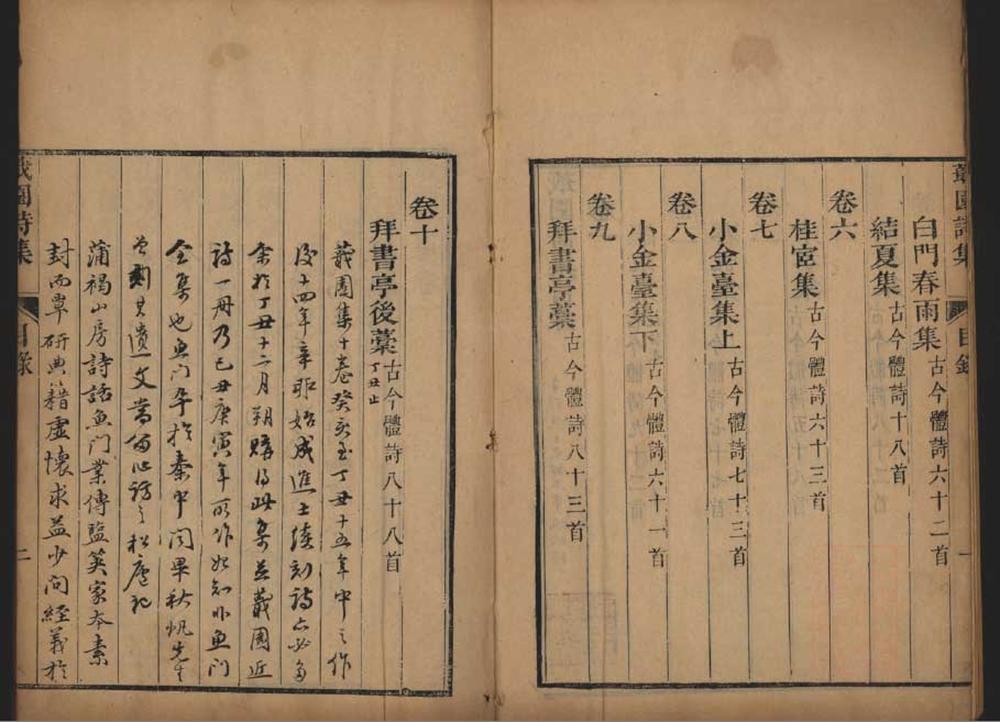 蕺園詩集 目錄 一
白門春雨集 古今體詩六十二首
結夏集 古今體詩十八首
卷六
桂宧集 古今體詩六十三首
卷七
小金臺集上 古今體詩七十三首
卷八
小金臺集下 古今體詩六十一首
卷九
拜書亭藁 古今體詩八十三首
卷十
拜書亭後藁 古今體詩八十八首
丁丑止
蕺園集十卷癸亥至丁丑十五年中之作
後十四年辛卯始成進士續刻詩亦必多
余於丁丑十二月朔購得此集並蕺園近
詩一冊乃己丑庚寅年所作始知非魚門
全集也魚門卒於秦中聞畢秋帆先生
曾刻其遺文當留心訪之松廬記
蒲褐山房詩話魚門業傳鹽筴家本素
封而覃研典籍虛懷求益少問經義於
蕺園詩集 目錄 二